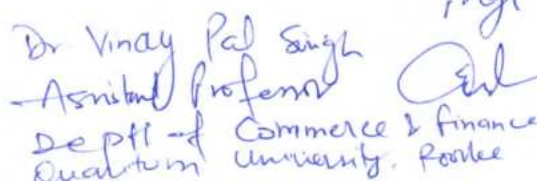 Dr. Vinay Pal Singh
Assistant Professor
Deptt of Commerce & Finance
Quantum University, Roorkee